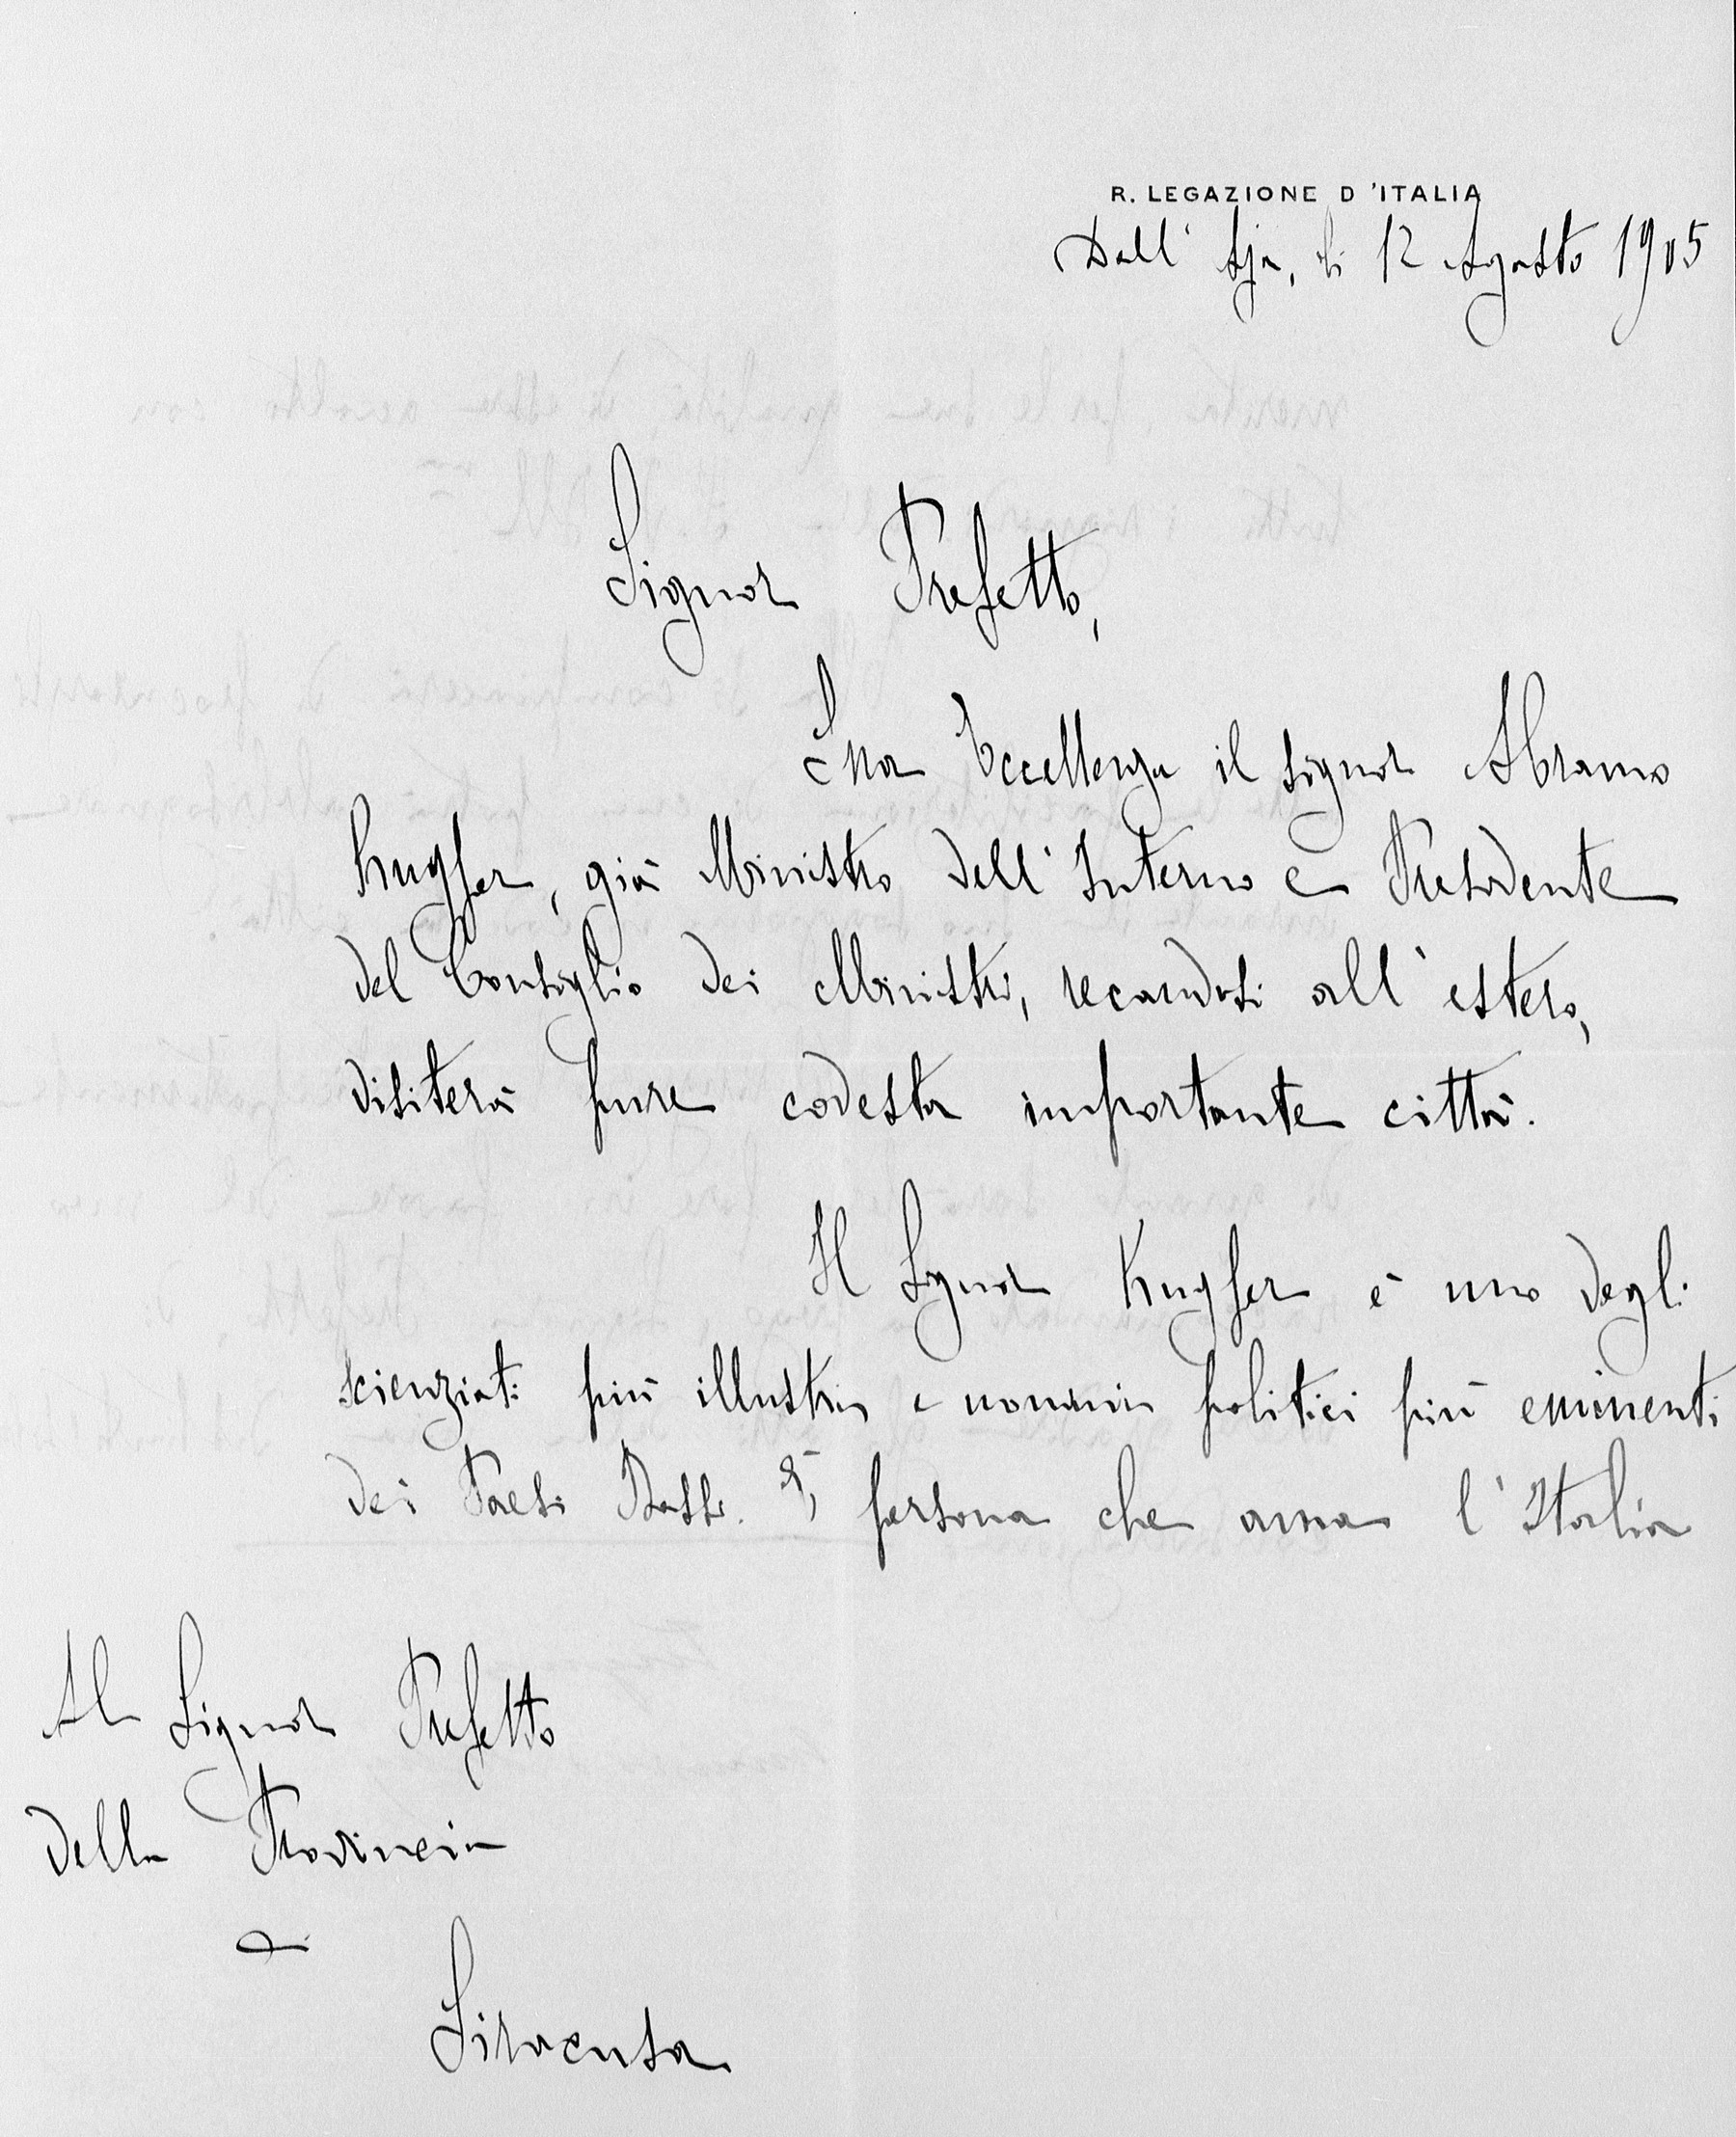 R. LEGAZIONE D'ITALIA
Dall' Aja, li 12 Agosto 1905
Signor Prefetto,
Sua Eccellenza il Signor Abramo
Kuyper, già Ministro dell'Interno e Presidente
del Consiglio dei Ministri, recandosi all'estero,
visiterà pure codesta importante città.
Il Signor Kuyper è uno degli
scienziati più illustri e uomini politici più eminenti
dei Paesi Bassi. È persona che ama l'Italia
Al Signor Prefetto
della Provincia
di
Siracusa